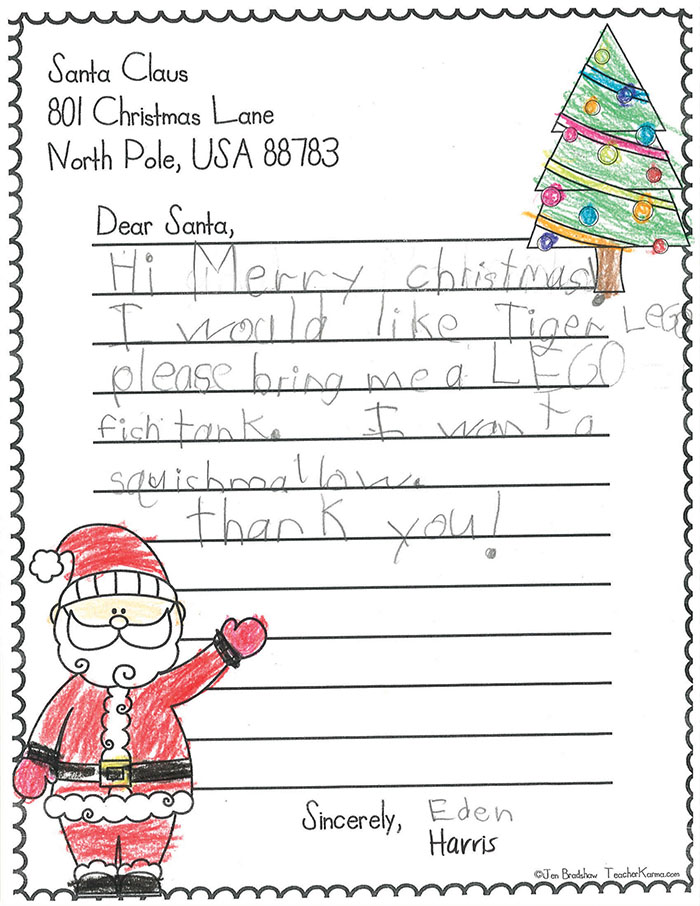 Santa Claus
801 Christmas Lane
North Pole, USA 88783
Dear Santa,
Hi Merry christmas!
I would like Tiger LEGO
please bring me a LEGO
fich tank. I want a
squichmallow.
thank you!
Sincerely, Eden
Harris
©Jen Bradshaw TeacherKarma.com